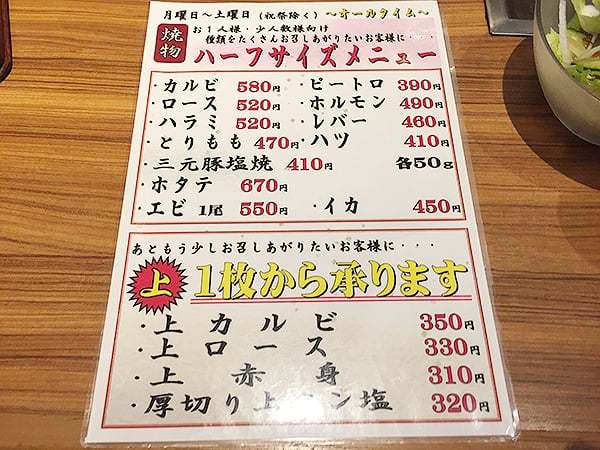 月曜日～土曜日（祝祭除く）～オールタイム～
焼物
お1人様・少人数様向け
種類をたくさんお召しあがりたいお客様に・・・
ハーフサイズメニュー
・カルビ 580円 ・ピートロ 390円
・ロース 520円 ・ホルモン 490円
・ハラミ 520円 ・レバー 460円
・とりもも 470円 ・ハツ 410円
・三元豚塩焼 410円 各50g
・ホタテ 670円
・エビ 1尾 550円 ・イカ 450円
あともう少しお召しあがりたいお客様に・・・
上 1枚から承ります
・上カルビ 350円
・上ロース 330円
・上赤身 310円
・厚切り上タン塩 320円